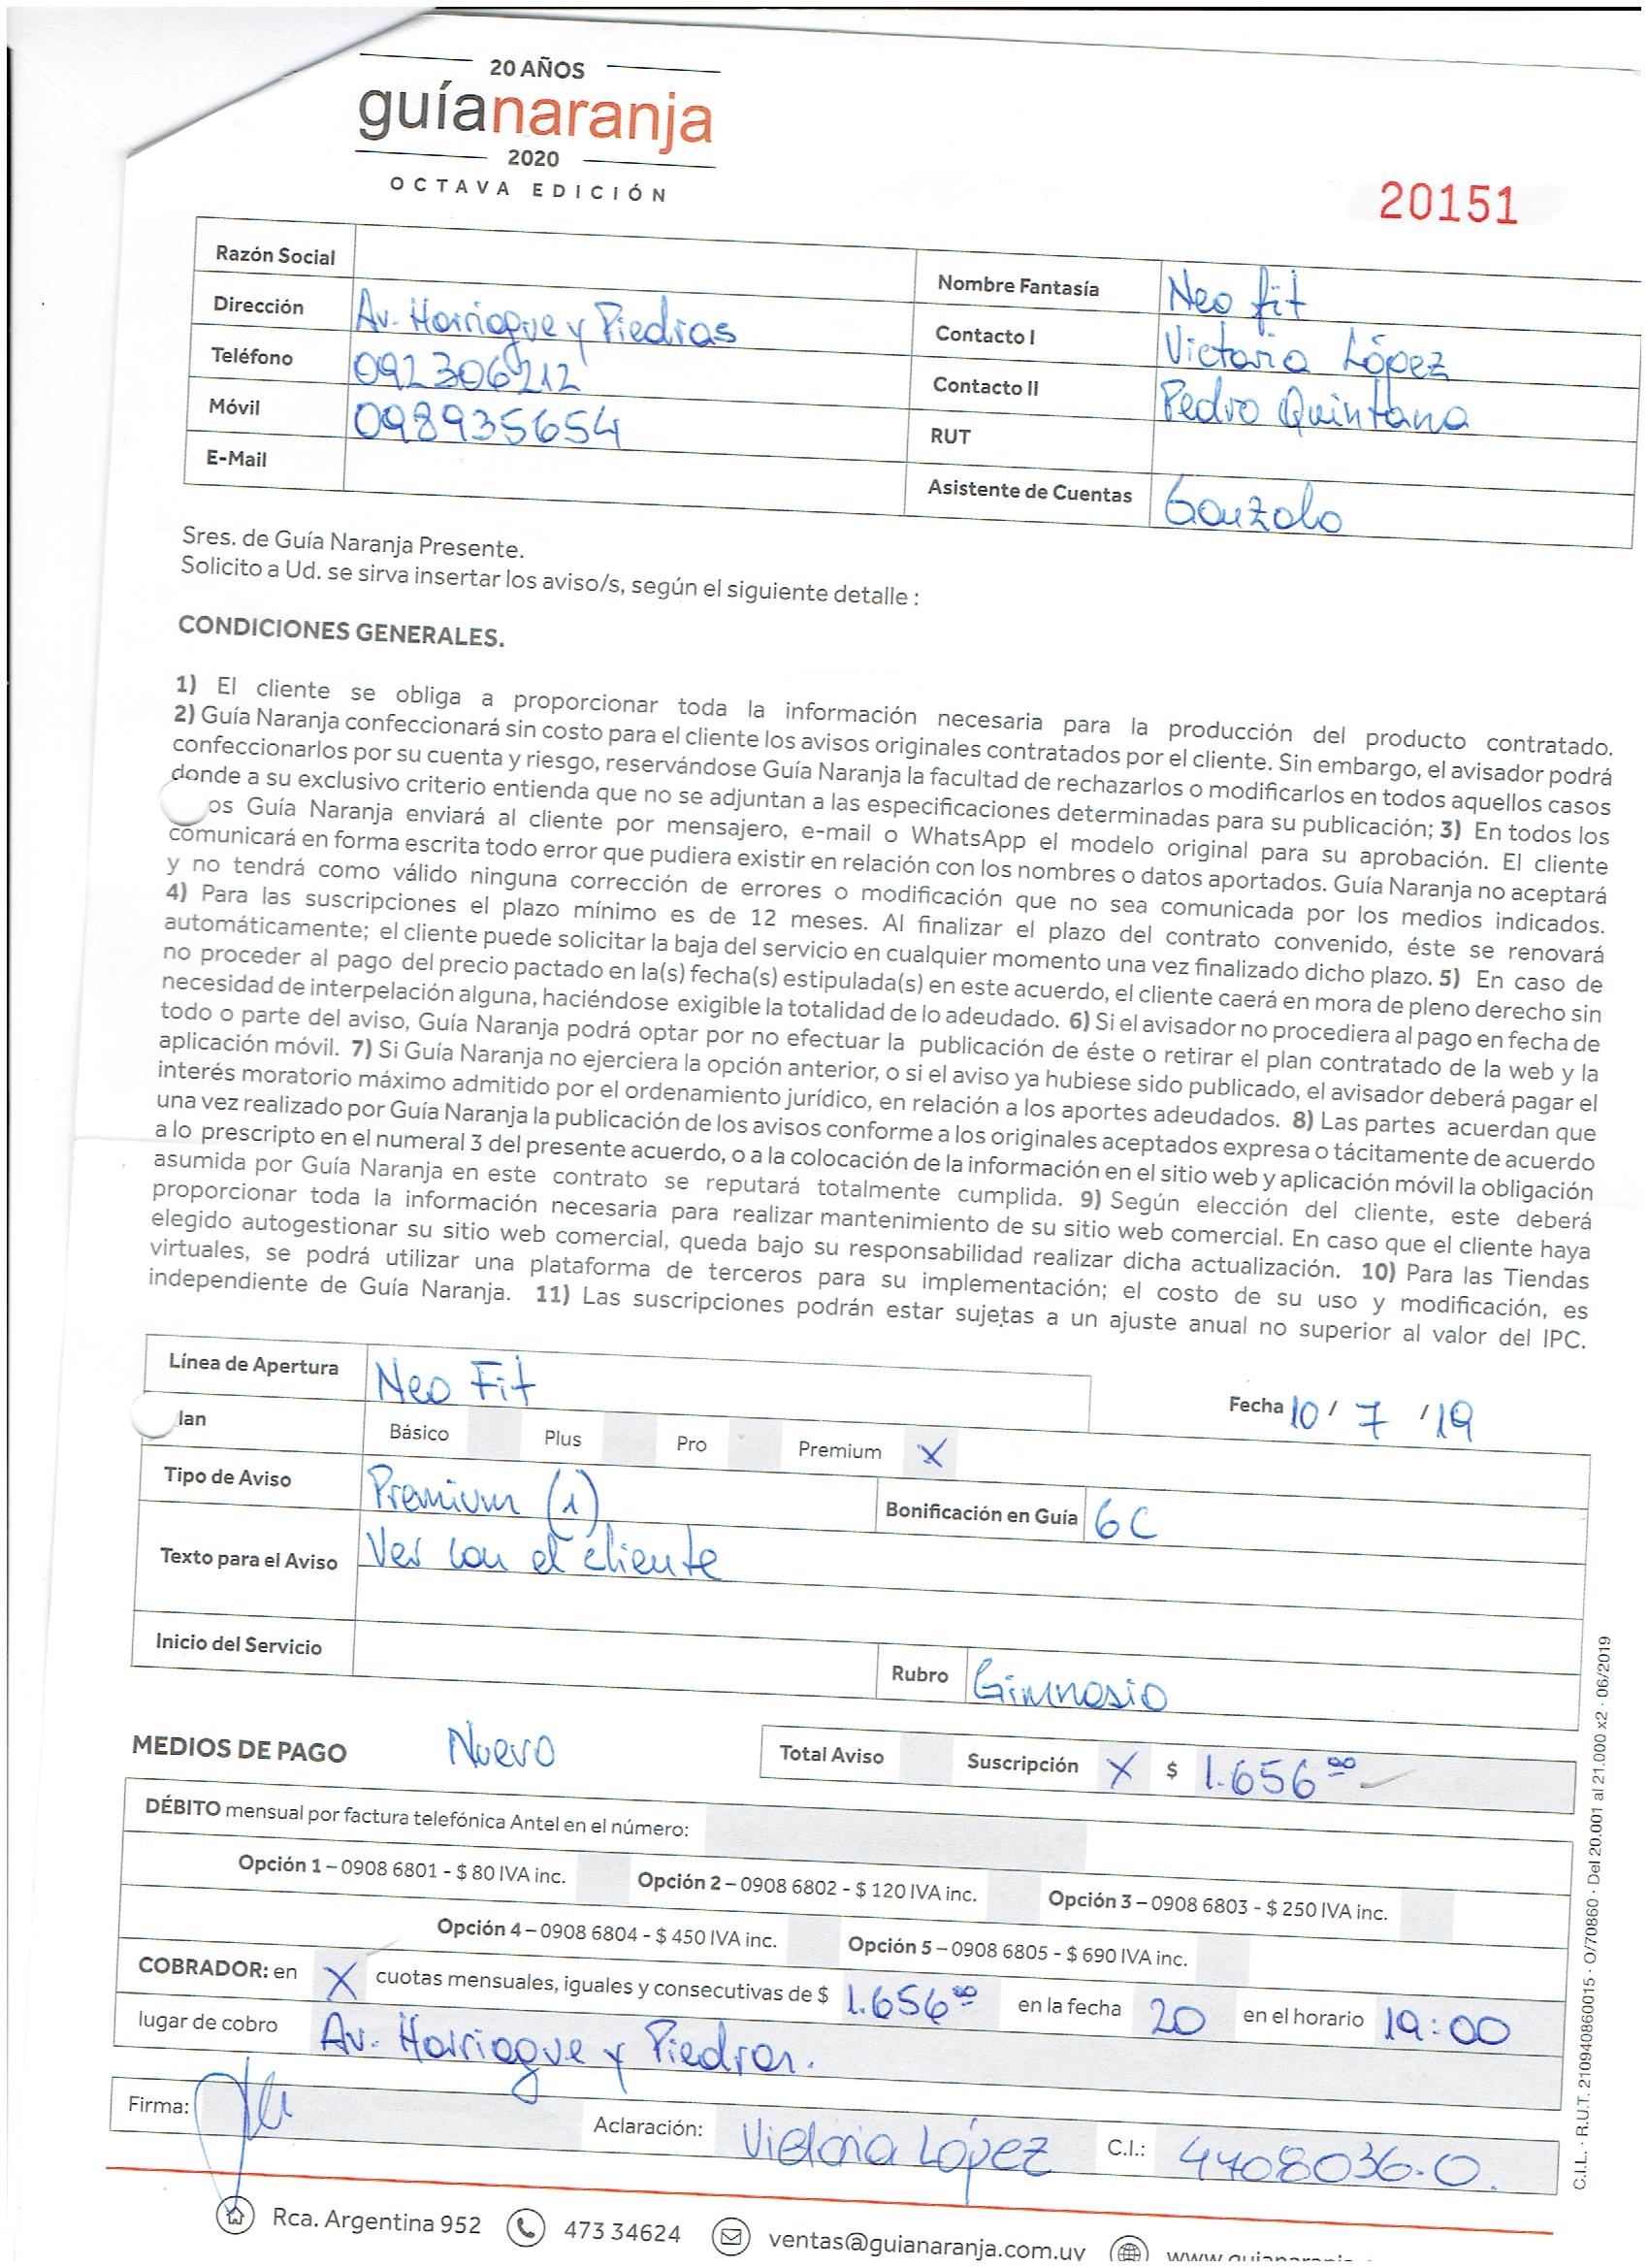 20 AÑOS
guíanaranja
2020
OCTAVA EDICIÓN
20151
Razón Social
Nombre Fantasía Neo fit
Dirección Av. Harriague y Piedras
Contacto I Victoria López
Teléfono 092306212
Contacto II Pedro Quintana
Móvil 098935654
RUT
E-Mail
Asistente de Cuentas Gonzalo
Sres. de Guía Naranja Presente.
Solicito a Ud. se sirva insertar los aviso/s, según el siguiente detalle :
CONDICIONES GENERALES.
1) El cliente se obliga a proporcionar toda la información necesaria para la producción del producto contratado.
2) Guía Naranja confeccionará sin costo para el cliente los avisos originales contratados por el cliente. Sin embargo, el avisador podrá
confeccionarlos por su cuenta y riesgo, reservándose Guía Naranja la facultad de rechazarlos o modificarlos en todos aquellos casos
donde a su exclusivo criterio entienda que no se adjuntan a las especificaciones determinadas para su publicación; 3) En todos los
os Guía Naranja enviará al cliente por mensajero, e-mail o WhatsApp el modelo original para su aprobación. El cliente
comunicará en forma escrita todo error que pudiera existir en relación con los nombres o datos aportados. Guía Naranja no aceptará
y no tendrá como válido ninguna corrección de errores o modificación que no sea comunicada por los medios indicados.
4) Para las suscripciones el plazo mínimo es de 12 meses. Al finalizar el plazo del contrato convenido, éste se renovará
automáticamente; el cliente puede solicitar la baja del servicio en cualquier momento una vez finalizado dicho plazo. 5) En caso de
no proceder al pago del precio pactado en la(s) fecha(s) estipulada(s) en este acuerdo, el cliente caerá en mora de pleno derecho sin
necesidad de interpelación alguna, haciéndose exigible la totalidad de lo adeudado. 6) Si el avisador no procediera al pago en fecha de
todo o parte del aviso, Guía Naranja podrá optar por no efectuar la publicación de éste o retirar el plan contratado de la web y la
aplicación móvil. 7) Si Guía Naranja no ejerciera la opción anterior, o si el aviso ya hubiese sido publicado, el avisador deberá pagar el
interés moratorio máximo admitido por el ordenamiento jurídico, en relación a los aportes adeudados. 8) Las partes acuerdan que
una vez realizado por Guía Naranja la publicación de los avisos conforme a los originales aceptados expresa o tácitamente de acuerdo
a lo prescripto en el numeral 3 del presente acuerdo, o a la colocación de la información en el sitio web y aplicación móvil la obligación
asumida por Guía Naranja en este contrato se reputará totalmente cumplida. 9) Según elección del cliente, este deberá
proporcionar toda la información necesaria para realizar mantenimiento de su sitio web comercial. En caso que el cliente haya
elegido autogestionar su sitio web comercial, queda bajo su responsabilidad realizar dicha actualización. 10) Para las Tiendas
virtuales, se podrá utilizar una plataforma de terceros para su implementación; el costo de su uso y modificación, es
independiente de Guía Naranja. 11) Las suscripciones podrán estar sujetas a un ajuste anual no superior al valor del IPC.
Línea de Apertura Neo Fit
Fecha 10 / 7 / 19
lan Básico Plus Pro Premium X
Tipo de Aviso Premium (1)
Bonificación en Guía 6C
Texto para el Aviso Ver con el cliente
Inicio del Servicio
Rubro Gimnasio
MEDIOS DE PAGO Nuevo
Total Aviso Suscripción X $ 1.656 00
DÉBITO mensual por factura telefónica Antel en el número:
Opción 1 – 0908 6801 - $ 80 IVA inc. Opción 2 – 0908 6802 - $ 120 IVA inc. Opción 3 – 0908 6803 - $ 250 IVA inc.
Opción 4 – 0908 6804 - $ 450 IVA inc. Opción 5 – 0908 6805 - $ 690 IVA inc.
COBRADOR: en X cuotas mensuales, iguales y consecutivas de $ 1.656 00 en la fecha 20 en el horario 19:00
lugar de cobro Av. Harriague y Piedras.
Firma: Aclaración: Victoria López C.I.: 4408036-0.
Rca. Argentina 952 473 34624 ventas@guianaranja.com.uy
C.I.L. · R.U.T. 210940860015 · O/70860 · Del 20.001 al 21.000 x2 · 06/2019